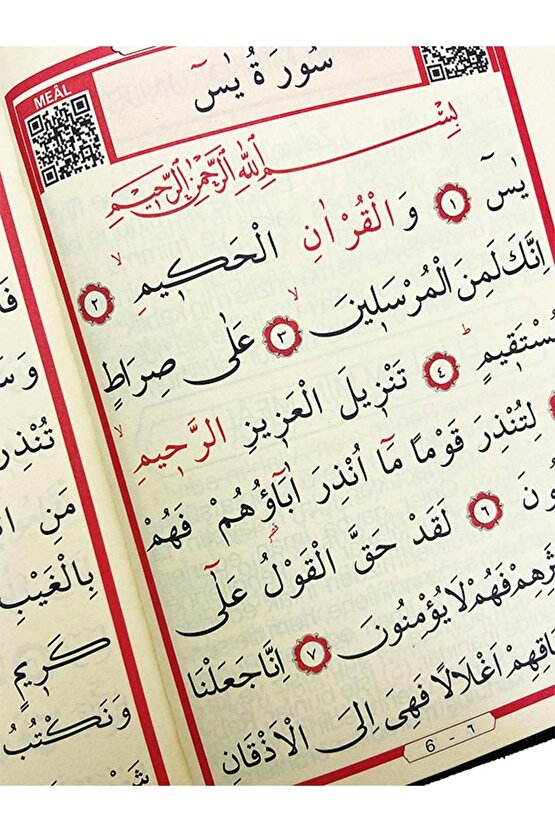 MEÂL
سُورَةُ يٰسٓ
بِسْمِ اللّٰهِ الرَّحْمٰنِ الرَّحٖيمِ
يٰسٓ ﴿١﴾ وَالْقُرْاٰنِ الْحَكٖيمِۙ ﴿٢﴾
اِنَّكَ لَمِنَ الْمُرْسَلٖينَۙ ﴿٣﴾ عَلٰى صِرَاطٍ
مُسْتَقٖيمٍؕ ﴿٤﴾ تَنْزٖيلَ الْعَزٖيزِ الرَّحٖيمِۙ
لِتُنْذِرَ قَوْمًا مَٓا اُنْذِرَ اٰبَٓاؤُهُمْ فَهُمْ
ونَ ﴿٦﴾ لَقَدْ حَقَّ الْقَوْلُ عَلٰٓى
ثَرِهِمْ فَهُمْ لَا يُؤْمِنُونَ ﴿٧﴾ اِنَّا جَعَلْنَا
اقِهِمْ اَغْلَالًا فَهِيَ اِلَى الْاَذْقَانِ
6 - ٦
تُنْذِرْ
مَنِ
بِالْغَيْبِ
كَرٖيمٍ
وَنَكْتُبُ